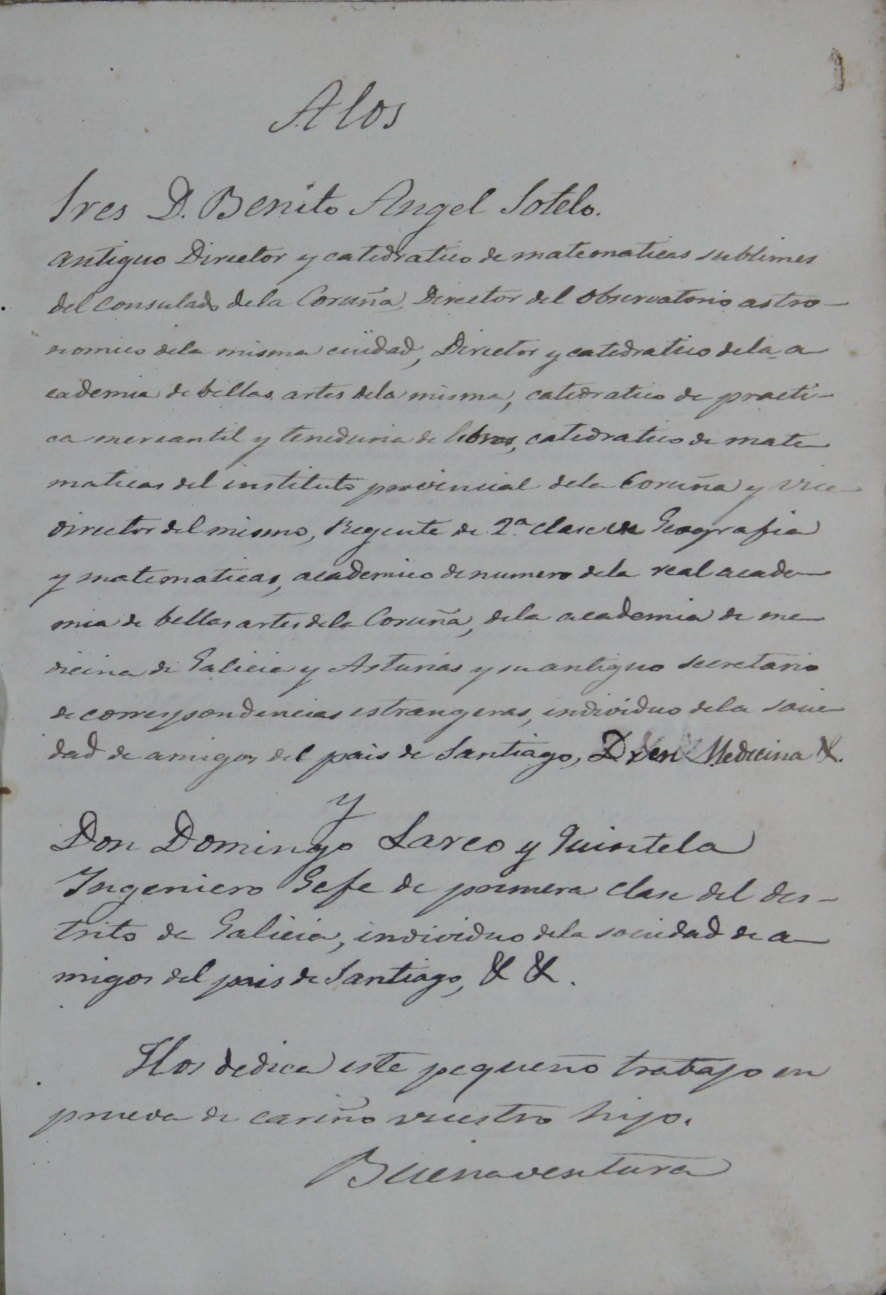 A los
Sres D. Benito Angel Sotelo.
antiguo Director y catedratico de matematicas sublimes
del consulado de la Coruña, Director del observatorio astro-
nomico dela misma ciudad, Director y catedratico dela a-
cademia de bellas artes dela misma, catedratico de practi-
ca mercantil y teneduria de libros, catedratico de mate
maticas del instituto provincial dela Coruña y vice
director del mismo, Regente de 2ª clase en Geografia
y matematicas, academico de numero dela real acade-
mia de bellas artes dela Coruña, dela academia de me-
dicina de Galicia y Asturias y su antiguo secretario
de correspondencias estrangeras, individuo dela socie-
dad de amigos del pais de Santiago, Dr en Medicina &.
y
Don Domingo Lareo y Quintela
Ingeniero Gefe de primera clase del des-
trito de Galicia, individuo dela sociedad de a-
migos del pais de Santiago, & &.
Hos dedica este pequeño trabajo en
prueva de cariño vuestro hijo.
Buenaventura